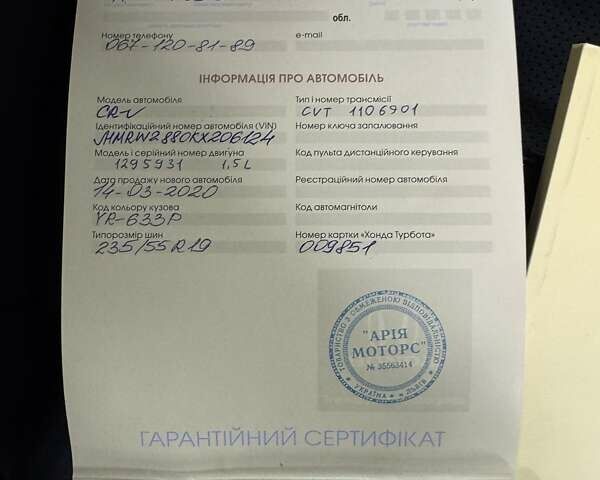 обл.
Номер телефону
e-mail
067-120-81-89
ІНФОРМАЦІЯ ПРО АВТОМОБІЛЬ
Модель автомобіля
Тип і номер трансмісії
CR-V
CVT 1106901
Ідентифікаційний номер автомобіля (VIN)
Номер ключа запалювання
JHMRW2880KX206124
Модель і серійний номер двигуна
Код пульта дистанційного керування
1295931 1,5 L
Дата продажу нового автомобіля
Реєстраційний номер автомобіля
14-03-2020
Код кольору кузова
Код автомагнітоли
YR-633P
Типорозмір шин
Номер картки «Хонда Турбота»
235/55 R19
009851
ТОВАРИСТВО З ОБМЕЖЕНОЮ ВІДПОВІДАЛЬНІСТЮ
"АРІЯ
МОТОРС"
№ 35563414
УКРАЇНА м. Львів
ГАРАНТІЙНИЙ СЕРТИФІКАТ